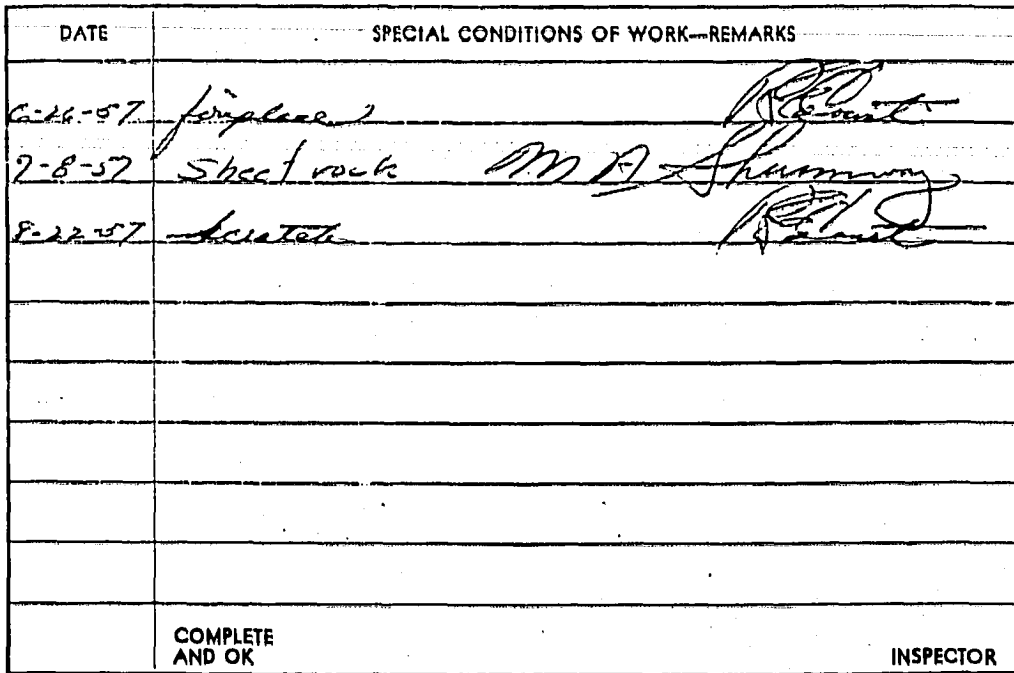 DATE SPECIAL CONDITIONS OF WORK—REMARKS
6-26-57 fireplace
7-8-57 Sheet rock M A Shumway
8-22-57
COMPLETE
AND OK INSPECTOR